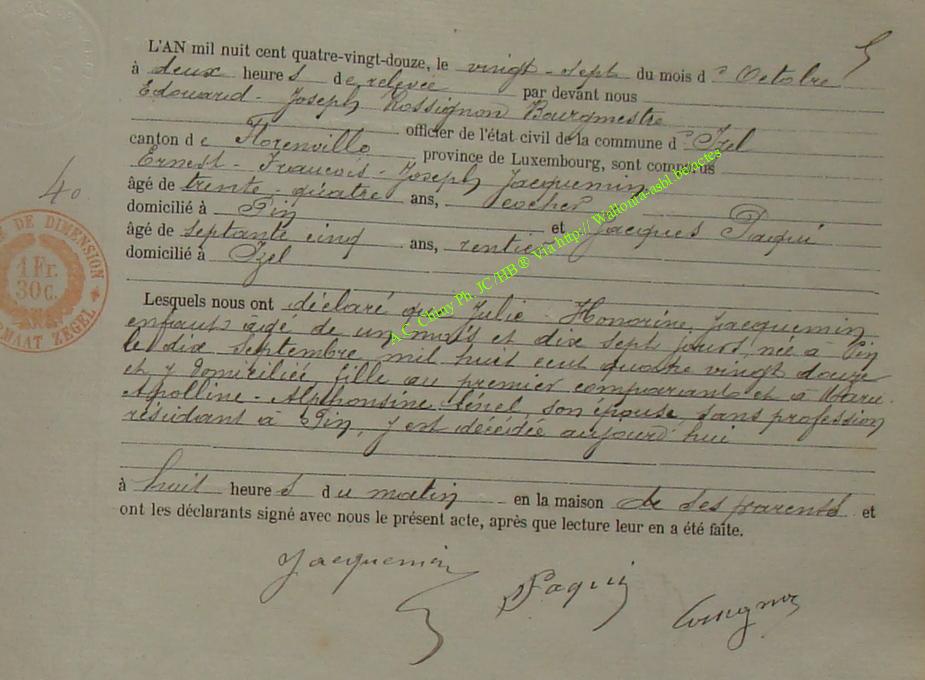 L'AN mil huit cent quatre-vingt-douze, le vingt-sept du mois d'Octobre
à deux heures de relevée par devant nous
Edouard-Joseph Rossignon Bourgmestre
officier de l'état civil de la commune d'Izel
canton de Florenville province de Luxembourg, sont comparus
Ernest-François-Joseph Jacquemin
âgé de trente-quatre ans, cocher
domicilié à Pin et Jacques Paqui
âgé de septante cinq ans, rentier
domicilié à Izel
Lesquels nous ont déclaré que Julie-Honorine Jacquemin
enfant âgé de un mois et dix sept jours, née à Pin
le dix Septembre mil huit cent quatre vingt douze
et y domiciliée fille au premier comparant et à Marie
Apolline-Alphonsine son épouse, sans profession
résidant à Pin, y est décédée aujourd'hui
à huit heures du matin en la maison de ses parents et
ont les déclarants signé avec nous le présent acte, après que lecture leur en a été faite.
Jacquemin
Paqui
40
DE DIMENSION
1 Fr.
30 c.
MAAT ZEGEL
A.C. Chiny Ph. JC /HB ® via http:// Wallonia-asbl.be/actes